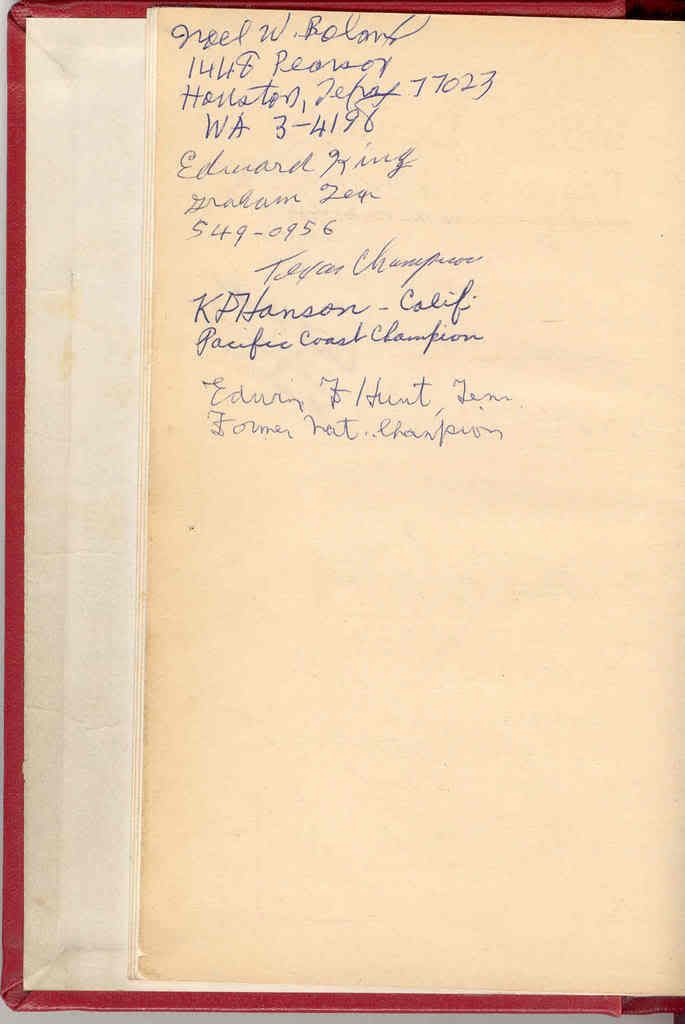 Noel W.
1448 Pearson
Houston, Texas 77023
WA 3-4196
Edward King
Graham Tex
549-0956
Texas Champion
K D Hanson - Calif.
Pacific Coast Champion
Edwin F Hunt, Tenn.
Former Nat. Champion